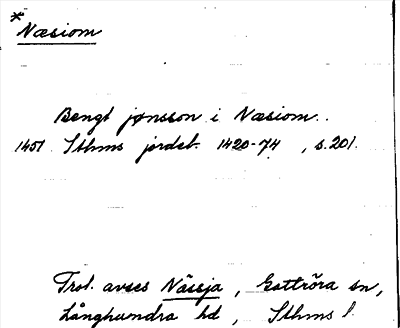 * Næsiom
Bengt jønsson i Næsiom.
1451 Sthms jordeb. 1420-74, s. 201.
Trol. avses Nässja, Gottröra sn,
Långhundra hd, Sthms l.